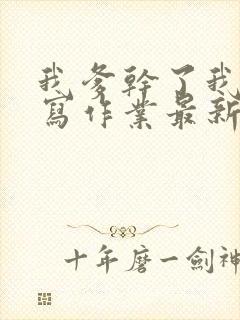 我爹幹了我
寫作業最新
十年磨一劍神